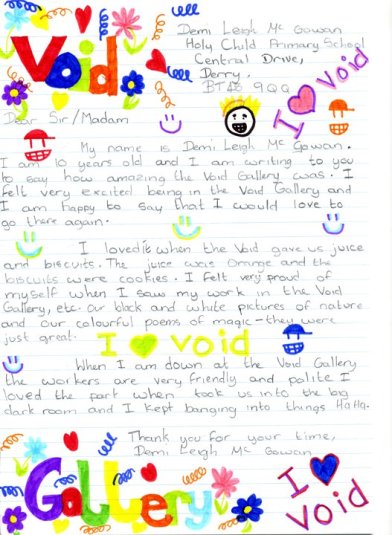 Void
Demi Leigh Mc Gowan
Holy Child Primary School
Central Drive,
Derry,
BT48 9QQ
I Void
Dear Sir/Madam
My name is Demi Leigh Mc Gowan.
I am 10 years old and I am writing to you
to say how amazing the Void Gallery was. I
felt very excited being in the Void Gallery and
I am happy to say that I would love to
go there again.
I loved it when the Void gave us juice
and biscuits. The juice was Orange and the
biscuits were cookies. I felt very proud of
myself when I saw my work in the Void
Gallery, etc. Our black and white pictures of nature
and Our colourful poems of magic - they were
just great.
I void
When I am down at the Void Gallery
the workers are very friendly and polite I
loved the part when took us into the big
dark room and I kept banging into things HaHa.
Thank you for your time,
Demi Leigh Mc Gowan
Gallery
I Void